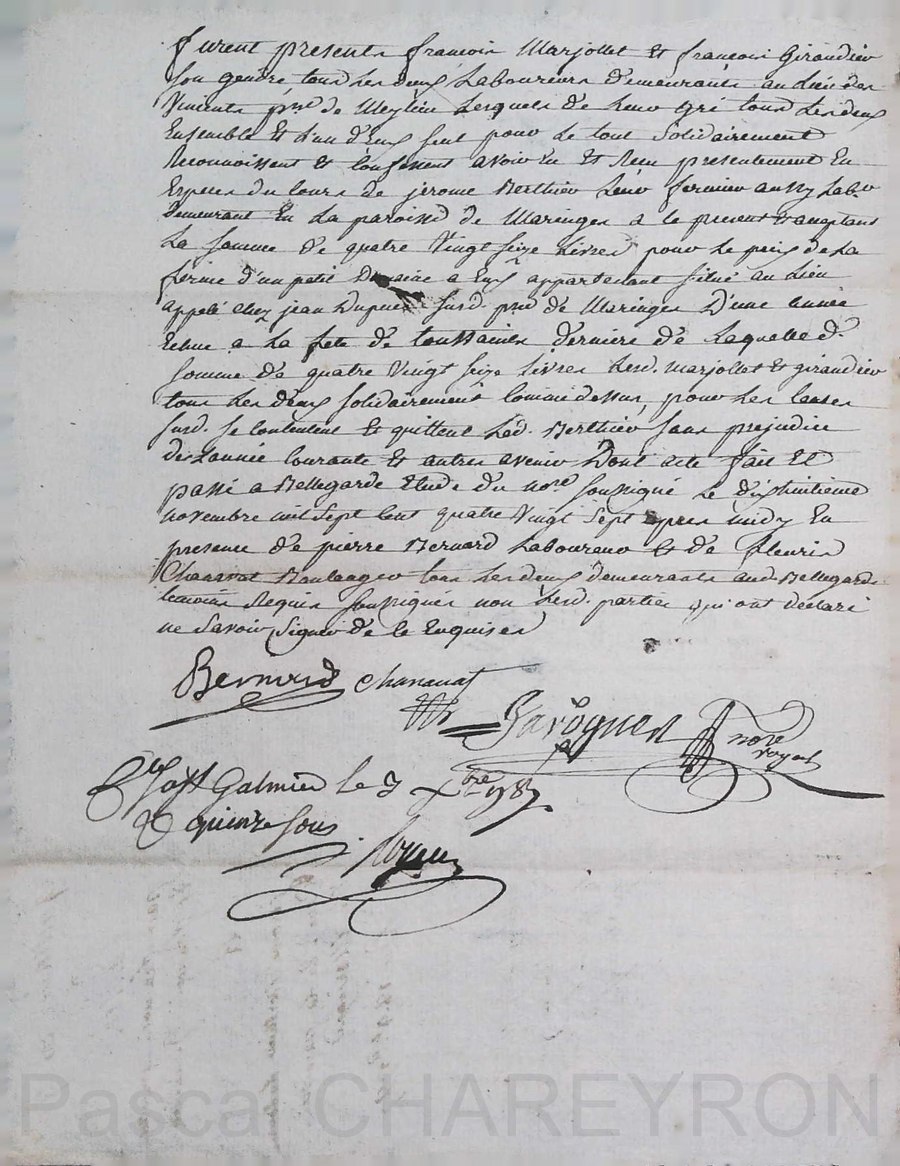 furent presents francois Marjollet et francois Girandier
son gendre tous les deux Laboureurs demeurants au lieu des
Vincents p.sse de Meylieu Lesquels de leur gré tous les deux
Ensemble et l'un d'Eux seul pour le tout solidairement
Reconnoissent et confessent avoir Eu et Recu presentement En
Especes du Cours de jerome Berthier Leur fermier aussy Labr
demeurant En La paroisse de Maringes a ce present et acceptant
La somme de quatre Vingt seize Livres pour le prix de La
ferme d'un petit Domaine a Eux appartenant situé au Lieu
appelé chez jean Dupuis susd. p.sse de Maringes D'une année
Echue a La fete de toussaints derniere de Laquelle d.
somme de quatre Vingt seize Livres Lesd. marjollet et girandier
tous Les deux solidairement comme dessus, pour Les causes
susd. se contentent et quittent Led. Berthier sans prejudice
de L'année Courante et autres avenir Dont acte fait et
passé a Bellegarde Etude du no.re soussigné Le dixhuitieme
novembre mil sept cent quatre Vingt sept apres midy En
presence de pierre Bernard Laboureur et de fleuris
Chanavat Boulanger tous Les deux demeurants aud. Bellegarde
temoins Requis soussignés non Lesd. parties qui ont declaré
ne savoir signer de ce Enquises
Bernard chanavat
Javogues no.re
royal
C.lé a St Galmier le 3 Xbre 1787.
R quinze sous